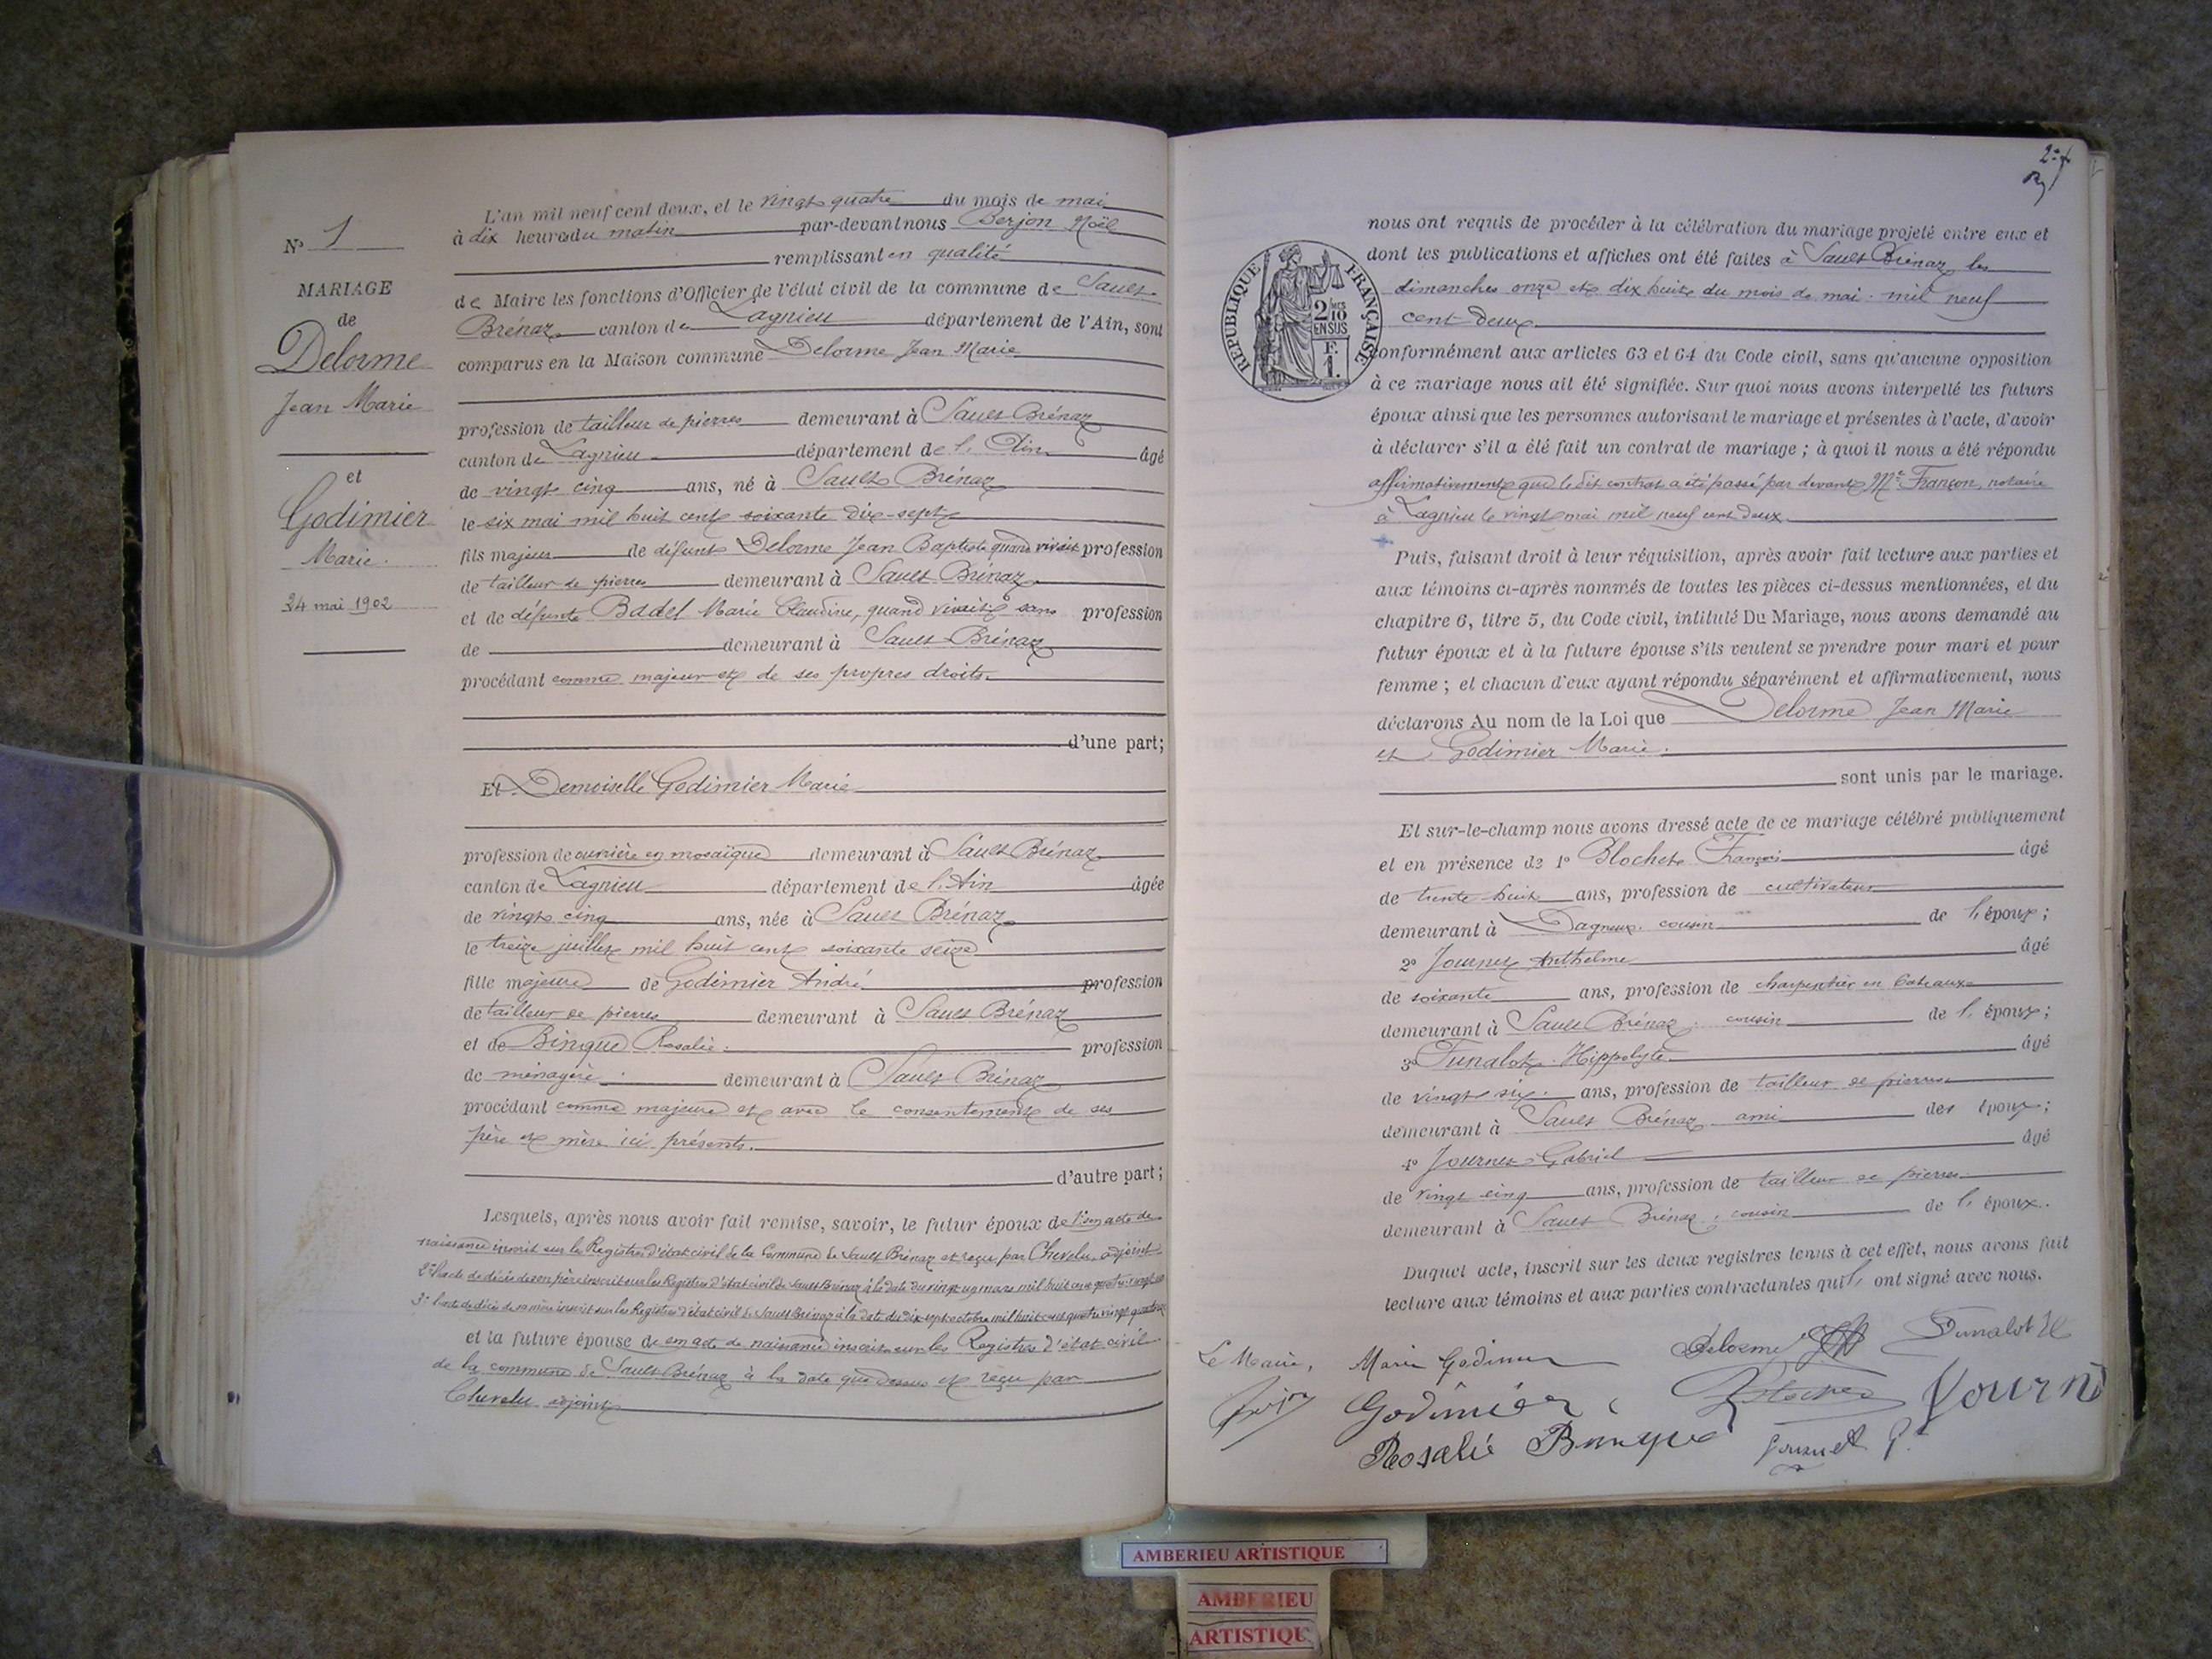 N° 1
MARIAGE
de
Delorme
Jean Marie
et
Godimier
Marie.
24 mai 1902
L'an mil neuf cent deux, et le vingt quatre du mois de mai
à dix heures du matin par-devant nous Berjon Noël
remplissant en qualité
de Maire les fonctions d'Officier de l'état civil de la commune de Sault
Brénaz canton de Lagnieu département de l'Ain, sont
comparus en la Maison commune Delorme Jean Marie
profession de tailleur de pierres demeurant à Sault Brénaz
canton de Lagnieu département de l'Ain âgé
de vingt cinq ans, né à Sault Brénaz
le six mai mil huit cent soixante dix-sept
fils majeur de défunt Delorme Jean Baptiste quand vivait profession
de tailleur de pierres demeurant à Sault Brénaz
et de défunte Badel Marie Claudine, quand vivait sans profession
de demeurant à Sault Brénaz
procédant comme majeur et de ses propres droits.
d'une part;
Et Demoiselle Godimier Marie
profession de ouvrière en mosaïque demeurant à Sault Brénaz
canton de Lagnieu département de l'Ain âgée
de vingt cinq ans, née à Sault Brénaz
le treize juillet mil huit cent soixante seize
fille majeure de Godimier André profession
de tailleur de pierres demeurant à Sault Brénaz
et de Binque Rosalie. profession
de ménagère. demeurant à Sault Brénaz
procédant comme majeure et avec le consentement de ses
père et mère ici présents.
d'autre part;
Lesquels, après nous avoir fait remise, savoir, le futur époux de 1° son acte de
naissance inscrit sur le Registre d'état civil de la Commune de Sault Brénaz et reçu par Chevelu, adjoint.
2° l'acte de décès de son père inscrit sur les Registres d'état civil de Sault Brénaz à la date du vingt un mars mil huit cent quatre vingt
3° l'acte de décès de sa mère inscrit sur les Registres d'état civil de Sault Brénaz à la date du dix sept octobre mil huit cent quatre vingt quatorze
et la future épouse de son acte de naissance inscrit sur les Registres d'état civil
de la commune de Sault Brénaz à la date que dessus et reçu par
Chevelu adjoint
nous ont requis de procéder à la célébration du mariage projeté entre eux et
dont les publications et affiches ont été faites à Sault Brénaz les
dimanches onze et dix huit du mois de mai mil neuf
cent deux.
RÉPUBLIQUE FRANÇAISE
2/10 EN SUS
F.
1.
conformément aux articles 63 et 64 du Code civil, sans qu'aucune opposition
à ce mariage nous ait été signifiée. Sur quoi nous avons interpellé les futurs
époux ainsi que les personnes autorisant le mariage et présentes à l'acte, d'avoir
à déclarer s'il a été fait un contrat de mariage; à quoi il nous a été répondu
affirmativement que le dit contrat a été passé par devant Me Françon, notaire
à Lagnieu le vingt mai mil neuf cent deux.
Puis, faisant droit à leur réquisition, après avoir fait lecture aux parties et
aux témoins ci-après nommés de toutes les pièces ci-dessus mentionnées, et du
chapitre 6, titre 5, du Code civil, intitulé Du Mariage, nous avons demandé au
futur époux et à la future épouse s'ils veulent se prendre pour mari et pour
femme; et chacun d'eux ayant répondu séparément et affirmativement, nous
déclarons Au nom de la Loi que Delorme Jean Marie
et Godimier Marie.
sont unis par le mariage.
Et sur-le-champ nous avons dressé acte de ce mariage célébré publiquement
et en présence de 1° Blochet François âgé
de trente huit ans, profession de cultivateur
demeurant à Dagneux. cousin de l'époux;
2° Journet Anthelme âgé
de soixante ans, profession de charpentier en bateaux
demeurant à Sault Brénaz. cousin de l'époux;
3° Tunalot Hippolyte âgé
de vingt six. ans, profession de tailleur de pierres
demeurant à Sault Brénaz ami des époux;
4° Journet Gabriel âgé
de vingt cinq ans, profession de tailleur de pierres
demeurant à Sault Brénaz, cousin de l'époux.
Duquel acte, inscrit sur les deux registres tenus à cet effet, nous avons fait
lecture aux témoins et aux parties contractantes qui ont signé avec nous.
Le Maire, Marie Godimier Delorme
Godimier
Rosalie Binque Journet G.
AMBERIEU ARTISTIQUE
AMBERIEU
ARTISTIQUE